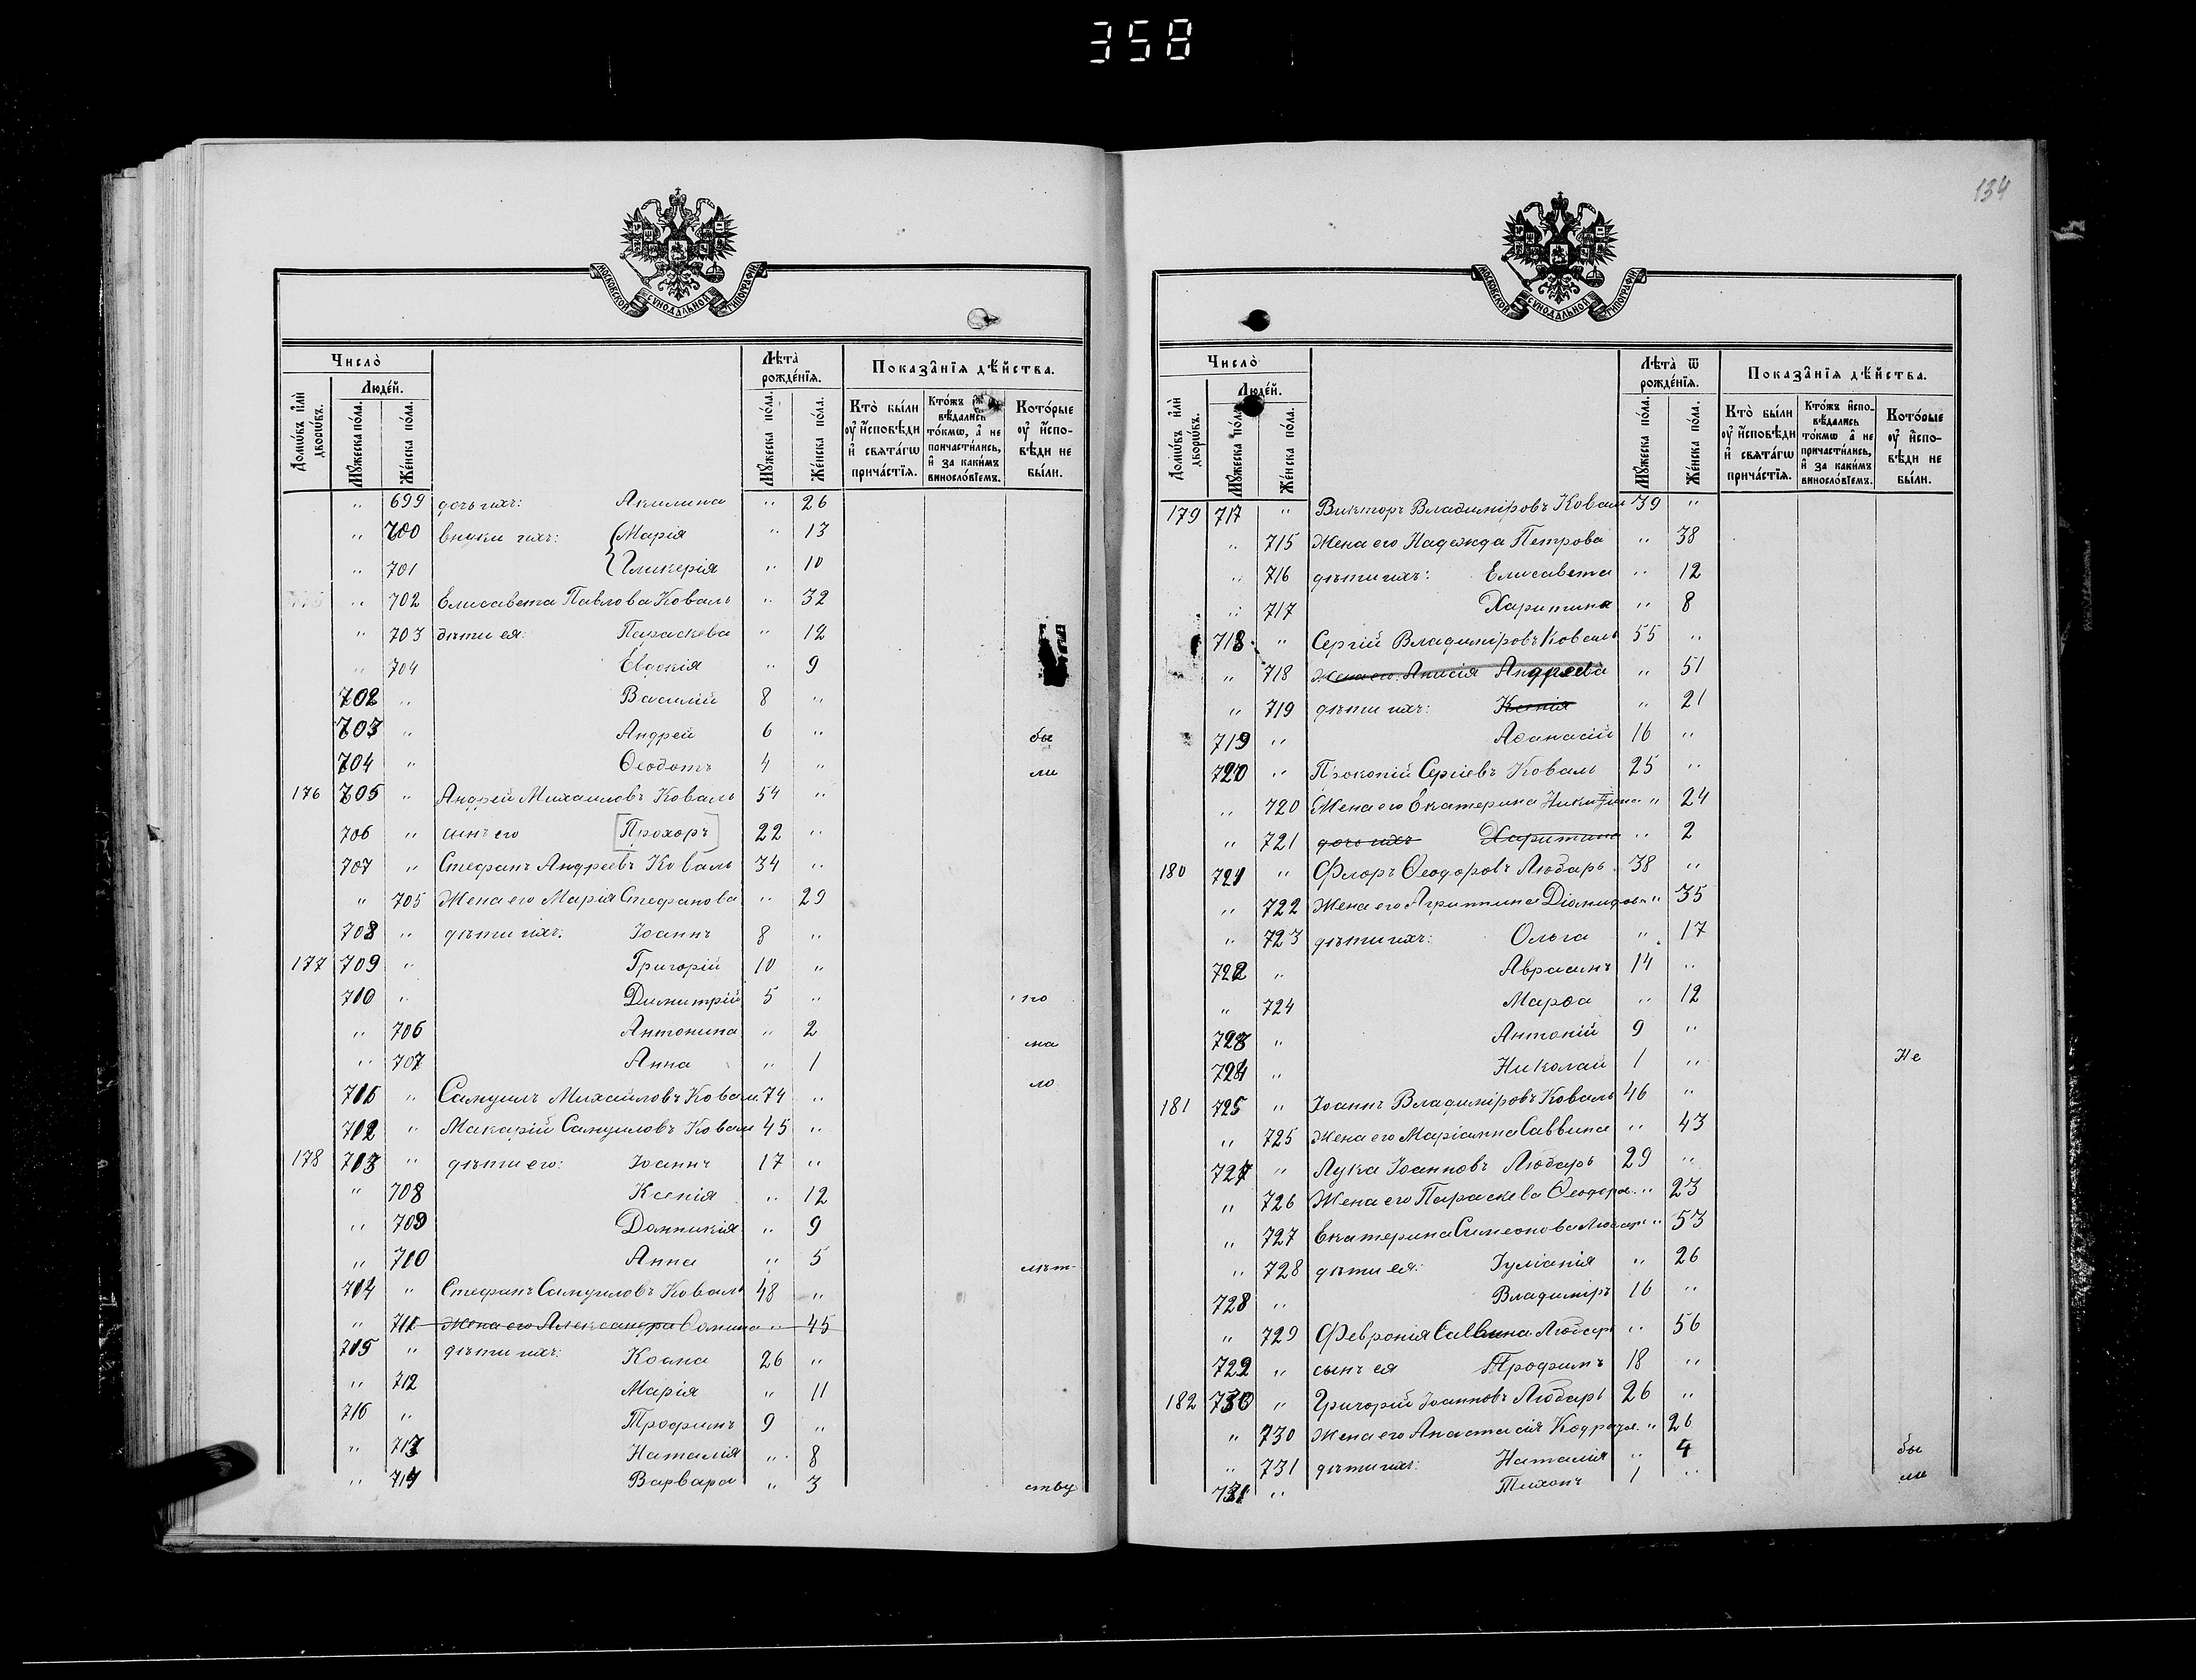 358
МОСКОВСКОЙ СѴНОДАЛЬНОЙ ТИПОГРАФІИ.
Число̀
Людéй.
Лѣта̀
рождéнїѧ.
Показа̂нїѧ дѣ́йства.
Домѡ́въ и҆лѝ дворѡ́въ.
Мꙋ́жеска по́ла.
Жéнска по́ла.
Мꙋ́жеска по́ла.
Жéнска по́ла.
Кто̀ бы́ли ᲂу҆ и҆сповѣди и҆ свѧта́гѡ прича́стїѧ.
вѣдались то́кмѡ, а҆ не причасти́лись, и҆ за каки́мъ виносло́вїемъ.
Кото́рые ᲂу҆ и҆сповѣди не бы́ли.
" 699 дочь ихъ: Акилина " 26
" 700 внуки ихъ: Марія " 13
" 701 Гликерія " 10
" 702 Елисавета Павлова Коваль " 32
" 703 дѣти ея: Параскева " 12
" 704 Евдокія " 9
702 " Василій 8 "
703 " Андрей 6 " бы
704 " Ѳеодотъ 4 " ли
176 705 " Андрей Михаиловъ Коваль 54 "
706 " сынъ его [Прохоръ] 22 "
707 " Стефанъ Андреевъ Коваль 34 "
" 705 Жена его Марія Стефанова " 29
708 " дѣти ихъ: Іоаннъ 8 "
177 709 " Григорій 10 "
710 " Димитрій 5 " по
" 706 Антонина " 2 ма
" 707 Анна " 1 ло
711 " Самуилъ Михаиловъ Коваль 74 "
712 " Макарій Самуиловъ Коваль 45 "
178 713 " дѣти его: Іоаннъ 17 "
" 708 Ксенія " 12
" 709 Домникія " 9
" 710 Анна " 5 лѣт
714 " Стефанъ Самуиловъ Коваль 48 "
" 711 Жена его Александра Ѳомина " 45
715 " дѣти ихъ: Козма 26 "
" 712 Марія " 11
716 " Трофимъ 9 "
" 713 Наталія " 8
" 714 Варвара " 3 ству
134
МОСКОВСКОЙ СѴНОДАЛЬНОЙ ТИПОГРАФІИ.
Число̀
Людéй.
Лѣта̀ ѿ
рождéнїѧ.
Показа̂нїѧ дѣ́йства.
Домѡ́въ и҆лѝ дворѡ́въ.
Мꙋ́жеска по́ла.
Жéнска по́ла.
Мꙋ́жеска по́ла.
Жéнска по́ла.
Кто̀ бы́ли ᲂу҆ и҆сповѣди и҆ свѧта́гѡ прича́стїѧ.
Кто́жъ и҆сповѣдались то́кмѡ а҆ не причасти́лись, и҆ за каки́мъ виносло́вїемъ.
Кото́рые ᲂу҆ и҆сповѣди не бы́ли.
179 717 " Викторъ Владиміровъ Коваль 39 "
" 715 Жена его Надежда Петрова " 38
" 716 дѣти ихъ: Елисавета " 12
" 717 Харитина " 8
718 " Сергій Владиміровъ Коваль 55 "
" 718 Жена его Анисія Андреева " 51
" 719 дѣти ихъ: Ксенія " 21
719 " Аѳанасій 16 "
720 " Прокопій Сергіевъ Коваль 25 "
" 720 Жена его Екатерина " 24
" 721 дочь ихъ Харитина " 2
180 721 " Флоръ Ѳеодоровъ Любарь 38 "
" 722 Жена его Агриппина " 35
" 723 дѣти ихъ: Ольга " 17
722 " Авраамъ 14 "
" 724 Марѳа " 12
723 " Антоній 9 "
724 " Николай 1 " Не
181 725 " Іоаннъ Владиміровъ Коваль 46 "
" 725 Жена его Маріамна Саввина " 43
727 " Лука Іоанновъ Любарь 29 "
" 726 Жена его Параскева Ѳеодора " 23
" 727 Екатерина Симеонова Любарь " 53
" 728 дѣти ея: Іуліанія " 26
728 " Владиміръ 16 "
" 729 Февронія Саввина Любарь " 56
729 " сынъ ея Трофимъ 18 "
182 730 " Григорій Іоанновъ Любарь 26 "
" 730 Жена его Анастасія " 26
" 731 дѣти ихъ: Наталія " 4 бы
731 " Тихонъ 1 " ли